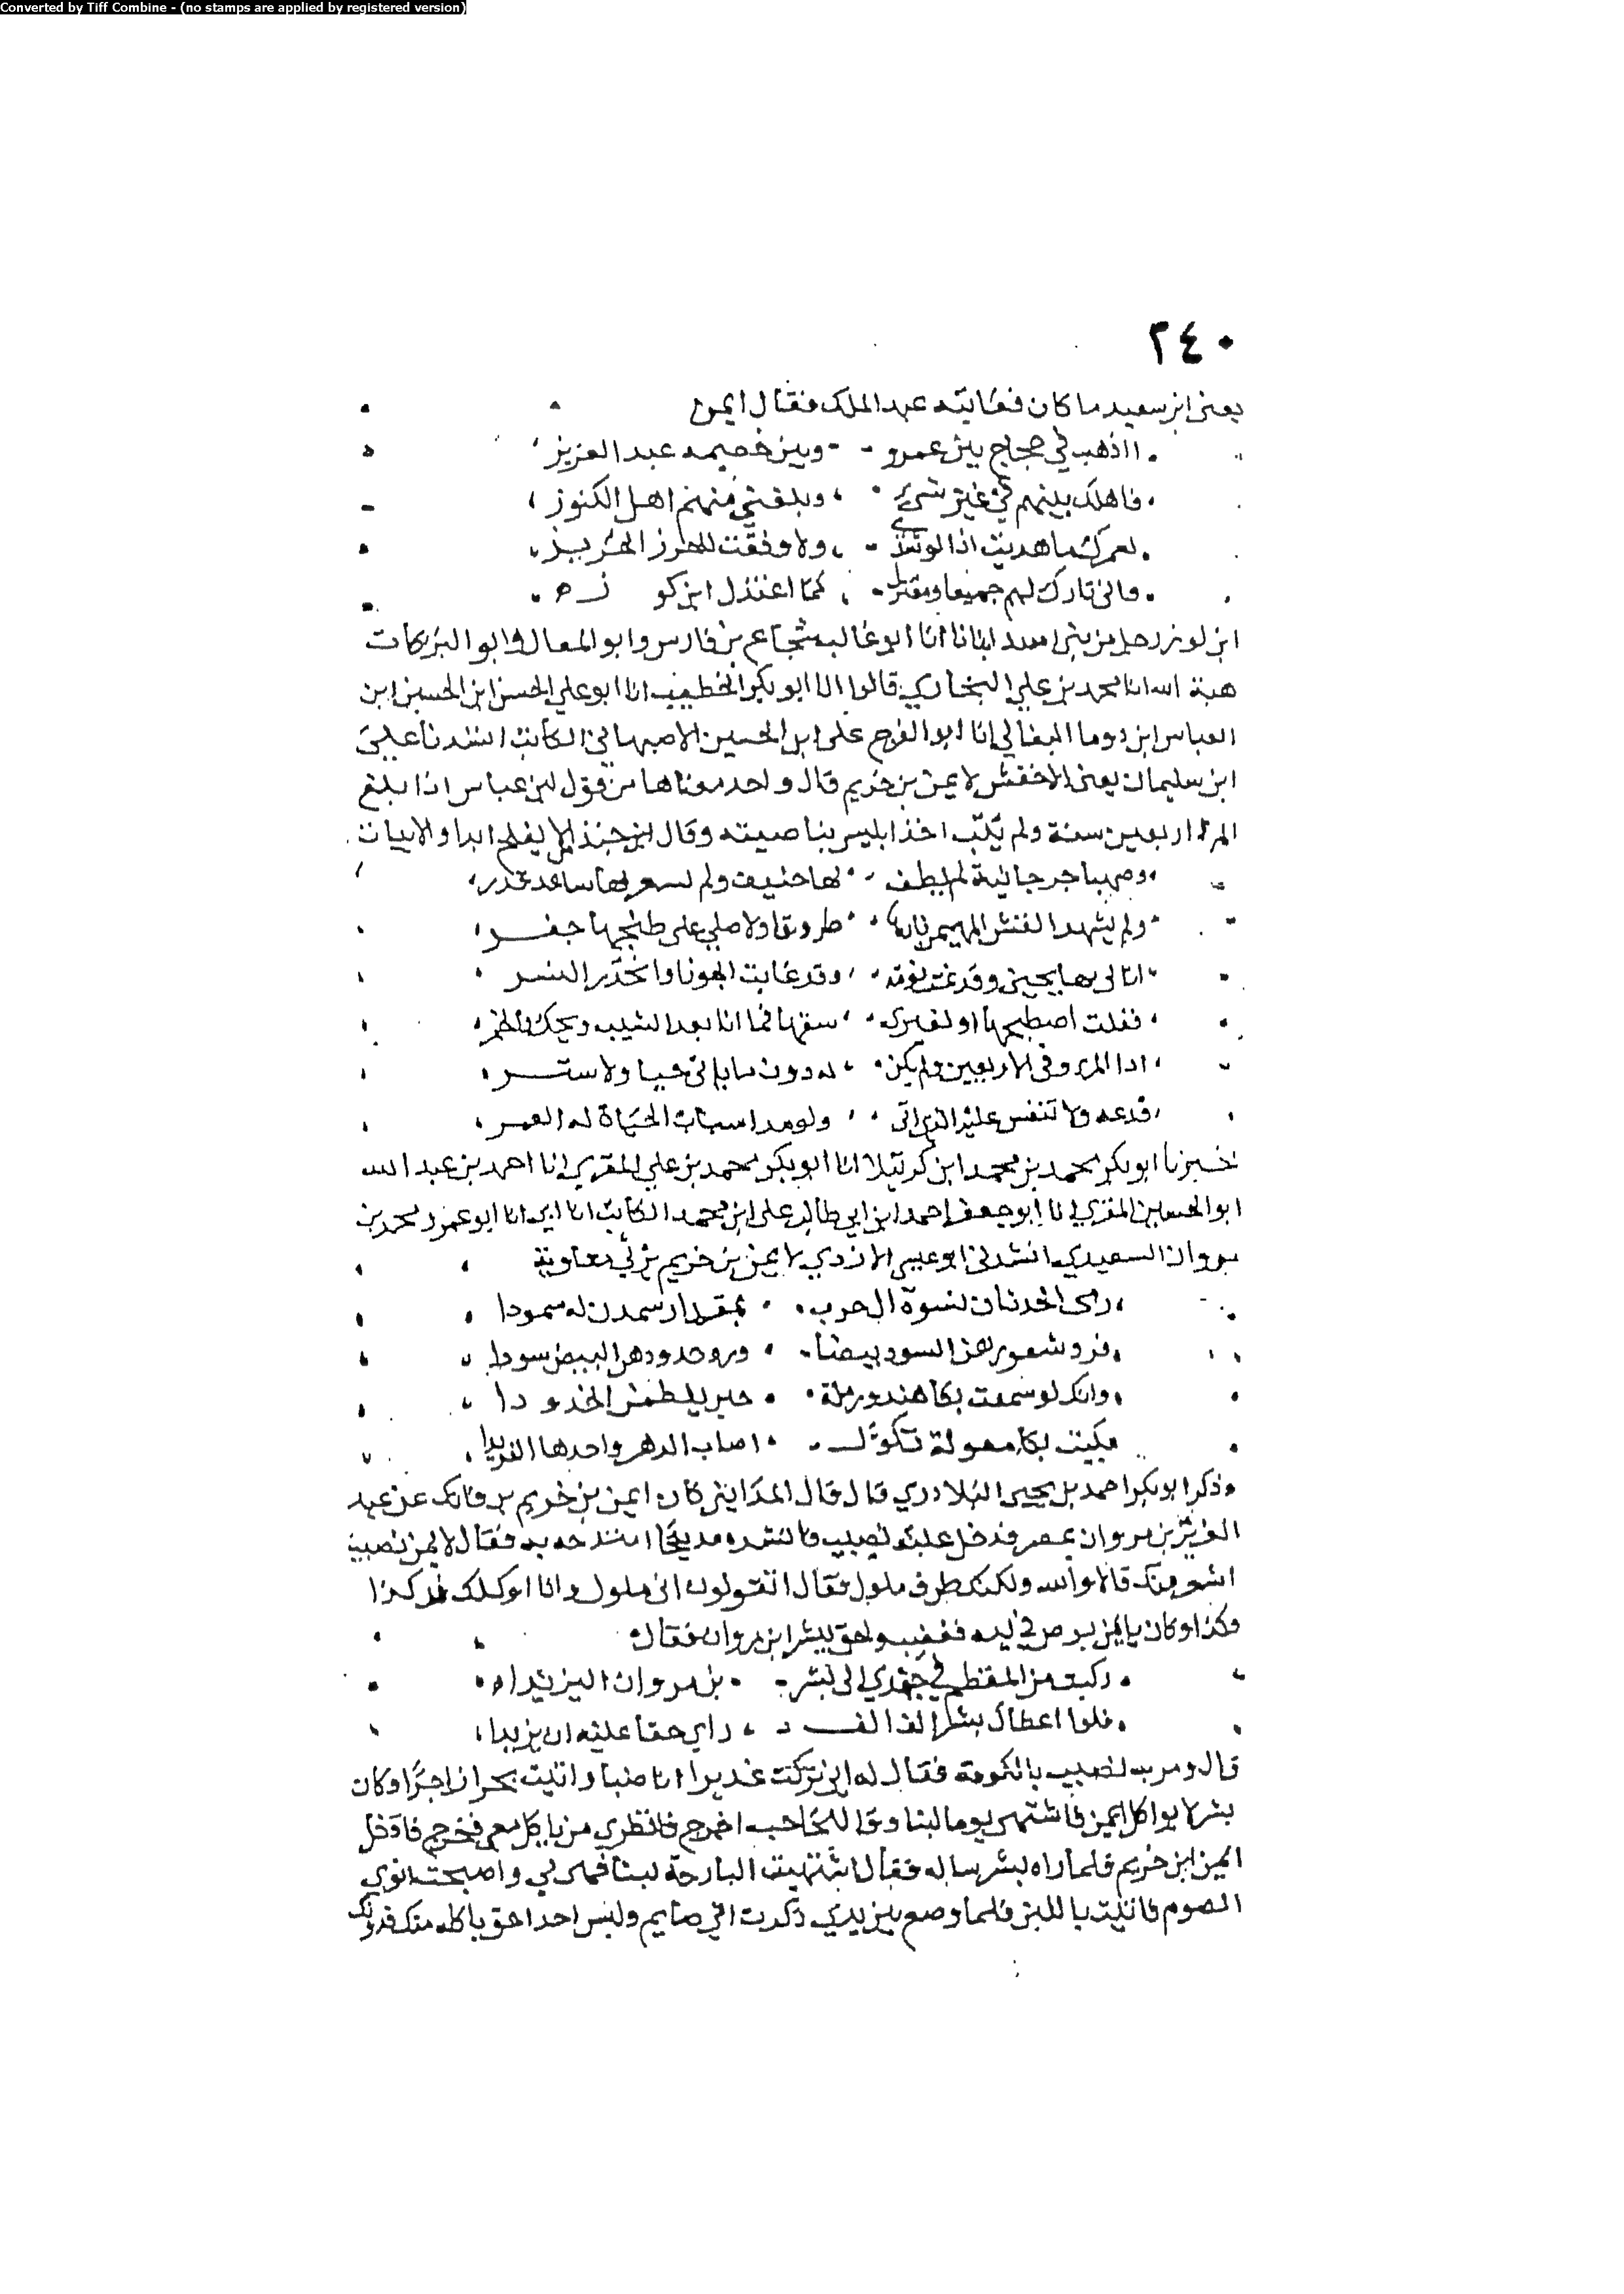 Converted by Tiff Combine - (no stamps are applied by registered version)
٢٤٠
يعنى ابن سعيد ما كان فعاتبه عبد الملك فقال ايمن
ااذهب في حجاج بين عمرو وبين خصيمه عبد العزيز
فاهلك بينهم في غير شيء وبلغتي منهم اهل الكنوز
لعمرك ما هديت اذا لرشدي ولا وفقت للحرز الحريز
فانى تارك لهم جميعا ومعتزل كما اعتزل ابن كوز
ابن كوز رجل من بنى اسد انبانا ابو غالب شجاع بن فارس وابو المعالي وابو البركات
هبة الله انا محمد بن علي البخاري قالوا انا ابو بكر الخطيب انا ابو علي الحسن ابن الحسين ابن
العباس ابن دوما النعالي انا ابو الفرج على ابن الحسين الاصبهاني الكاتب انشدنا علي
ابن سليمان يعنى الاخفش لايمن بن خزيم قال واحد معناها من قول ابن عباس اذا بلغ
المرء اربعين سنة ولم يتب اخذ ابليس بناصيته وقال لا يفلح ابدا والابيات
وصهبا جرجانية لم يطف لها حنيف ولم تسعر بها ساعة قدر
ولم يشهد القس المهيمن نارها طروقا ولا صلى على طبخها حبر
اتانى بها يحيى وقد نمت نومة وقد غابت الجوزا وانحدر النسر
فقلت اصطبحها او لغيري سقها فما انا بعد الشيب ويحك والخمر
اذا المرء وفى الاربعين ولم يكن له دون ما ياتى حيا ولا ستر
فدعه ولا تنفس عليه الذي اتى ولو مد اسباب الحياة له العمر
اخبرنا ابو بكر محمد بن محمد ابن كرتيلا انا ابو بكر محمد بن علي المقري انا احمد بن عبد الله
ابو الحسين المقري انا ابو جعفر احمد ابن ابي طالب على ابن محمد الكاتب انا ابي انا ابو عمرو محمد بن
مروان السعيدي انشدنى ابو عبيد الازدي لايمن بن خريم يرثي معاوية
رمى الحدثان نسوة ال حرب بمقدار سمدن له سمودا
فرد شعورهن السود بيضا ورد خدودهن البيض سودا
وانك لو سمعت بكا هند ورملة حين يلطمن الخدودا
بكيت بكا معولة ثكول اصاب الدهر واحدها الفريدا
وذكر ابو بكر احمد بن يحيى البلاذري قال قال المدايني كان ايمن بن خريم بن فاتك عند عبد
العزيز بن مروان بمصر فدخل عليه نصيب فانشده مديحا امتدحه به فقال لايمن نصيب
اشعر منك قال لا والله ولكنك طرف ملول فقال اتقول اني ملول وانا اوكلك مذ كذا
وكذا وكان بايمن برص في يده فغضب ولحق ببشر ابن مروان فقال
ركبت من المقطم في جمادي الى بشر بن مروان البريدا
فلو اعطاك بشر الف الف راى حقا عليه ان يزيدا
قال ومر به نصيب بالكوفة فقال له اني تركت غديرا ناضبا واتيت بحرا زاخرا وكان
بشر لا يواكل ايمن فاشتهى يوما لبنا وقال للحاجب اخرج فانظري من ياكل معي فخرج فادخل
ايمن ابن خريم فلما راه بشر ساله فقال اشتهيت البارحة لبنا فهيئ لي واصبحت انوي
الصوم فاتيت باللبن فلما وضع بين يدي ذكرت اني صايم وليس احد احق باكله منك فدونك